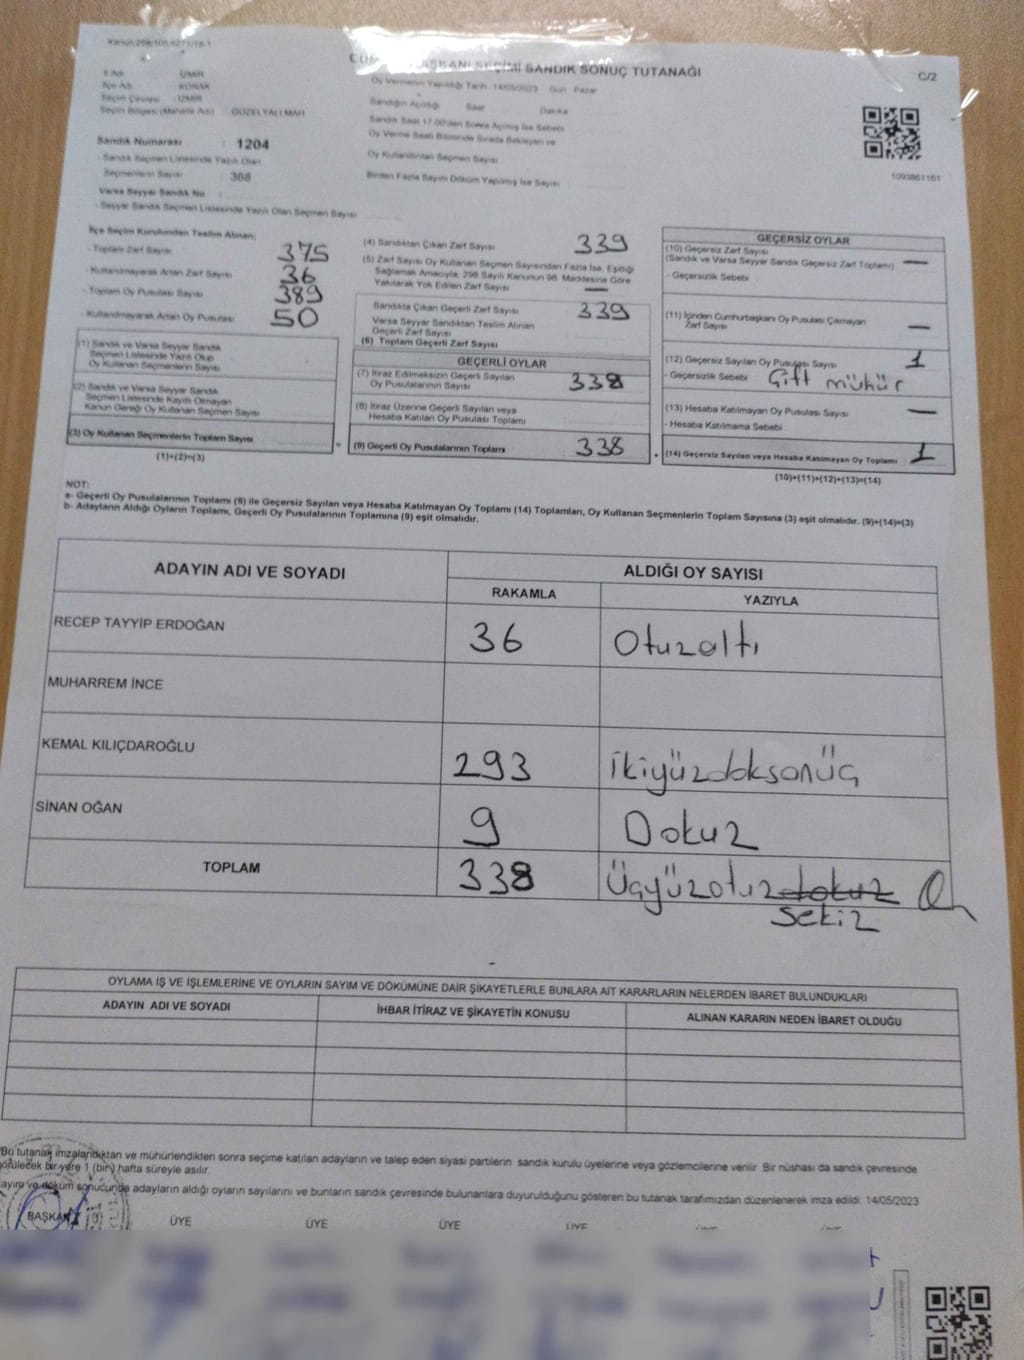 Kanun:298/105,6271/18-1
CUMHURBAŞKANI SEÇİMİ SANDIK SONUÇ TUTANAĞI
C/2
İl Adı : İZMİR
İlçe Adı : KONAK
Seçim Çevresi : İZMİR
Seçim Bölgesi (Mahalle Adı) : GÜZELYALI MAH
Sandık Numarası : 1204
- Sandık Seçmen Listesinde Yazılı Olan
Seçmenlerin Sayısı : 368
Varsa Seyyar Sandık No :
- Seyyar Sandık Seçmen Listesinde Yazılı Olan Seçmen Sayısı
Oy Vermenin Yapıldığı Tarih : 14/05/2023 Gün : Pazar
Sandığın Açıldığı Saat Dakika
Sandık Saat 17:00'den Sonra Açılmış İse Sebebi
Oy Verme Saati Bitiminde Sırada Bekleyen ve
Oy Kullandırılan Seçmen Sayısı
Birden Fazla Sayım Döküm Yapılmış İse Sayısı
1093861161
İlçe Seçim Kurulundan Teslim Alınan;
- Toplam Zarf Sayısı : 375
- Kullanılmayarak Artan Zarf Sayısı : 36
- Toplam Oy Pusulası Sayısı : 389
- Kullanılmayarak Artan Oy Pusulası : 50
(1) Sandık ve Varsa Seyyar Sandık
Seçmen Listesinde Yazılı Olup
Oy Kullanan Seçmenlerin Sayısı
(2) Sandık ve Varsa Seyyar Sandık
Seçmen Listesinde Kayıtlı Olmayan
Kanun Gereği Oy Kullanan Seçmen Sayısı
(3) Oy Kullanan Seçmenlerin Toplam Sayısı
(1)+(2)=(3)
(4) Sandıktan Çıkan Zarf Sayısı : 339
(5) Zarf Sayısı Oy Kullanan Seçmen Sayısından Fazla İse, Eşitliği
Sağlamak Amacıyla, 298 Sayılı Kanunun 98. Maddesine Göre
Yakılarak Yok Edilen Zarf Sayısı : —
Sandıkta Çıkan Geçerli Zarf Sayısı : 339
Varsa Seyyar Sandıktan Teslim Alınan
Geçerli Zarf Sayısı
(6) Toplam Geçerli Zarf Sayısı
GEÇERLİ OYLAR
(7) İtiraz Edilmeksizin Geçerli Sayılan
Oy Pusulalarının Sayısı : 338
(8) İtiraz Üzerine Geçerli Sayılan veya
Hesaba Katılan Oy Pusulası Toplamı
(9) Geçerli Oy Pusulalarının Toplamı : 338
GEÇERSİZ OYLAR
(10) Geçersiz Zarf Sayısı
(Sandık ve Varsa Seyyar Sandık Geçersiz Zarf Toplamı) : —
- Geçersizlik Sebebi :
(11) İçinden Cumhurbaşkanı Oy Pusulası Çıkmayan
Zarf Sayısı : —
(12) Geçersiz Sayılan Oy Pusulası Sayısı : 1
- Geçersizlik Sebebi : Çift mühür
(13) Hesaba Katılmayan Oy Pusulası Sayısı : —
- Hesaba Katılmama Sebebi :
(14) Geçersiz Sayılan veya Hesaba Katılmayan Oy Toplamı : 1
(10)+(11)+(12)+(13)=(14)
NOT:
a- Geçerli Oy Pusulalarının Toplamı (9) ile Geçersiz Sayılan veya Hesaba Katılmayan Oy Toplamı (14) Toplamları, Oy Kullanan Seçmenlerin Toplam Sayısına (3) eşit olmalıdır. (9)+(14)=(3)
b- Adayların Aldığı Oyların Toplamı, Geçerli Oy Pusulalarının Toplamına (9) eşit olmalıdır.
ADAYIN ADI VE SOYADI
ALDIĞI OY SAYISI
RAKAMLA YAZIYLA
RECEP TAYYİP ERDOĞAN 36 Otuzaltı
MUHARREM İNCE
KEMAL KILIÇDAROĞLU 293 İkiyüzdoksanüç
SİNAN OĞAN 9 Dokuz
TOPLAM 338 Üçyüzotuzdokuz
Sekiz
OYLAMA İŞ VE İŞLEMLERİNE VE OYLARIN SAYIM VE DÖKÜMÜNE DAİR ŞİKAYETLERLE BUNLARA AİT KARARLARIN NELERDEN İBARET BULUNDUKLARI
ADAYIN ADI VE SOYADI İHBAR İTİRAZ VE ŞİKAYETİN KONUSU ALINAN KARARIN NEDEN İBARET OLDUĞU
Bu tutanak imzalandıktan ve mühürlendikten sonra seçime katılan adayların ve talep eden siyasi partilerin sandık kurulu üyelerine veya gözlemcilerine verilir. Bir nüshası da sandık çevresinde
görülecek bir yere 1 (bir) hafta süreyle asılır.
ayım ve döküm sonucunda adayların aldığı oyların sayılarını ve bunların sandık çevresinde bulunanlara duyurulduğunu gösteren bu tutanak tarafımızdan düzenlenerek imza edildi. 14/05/2023
BAŞKAN ÜYE ÜYE ÜYE ÜYE